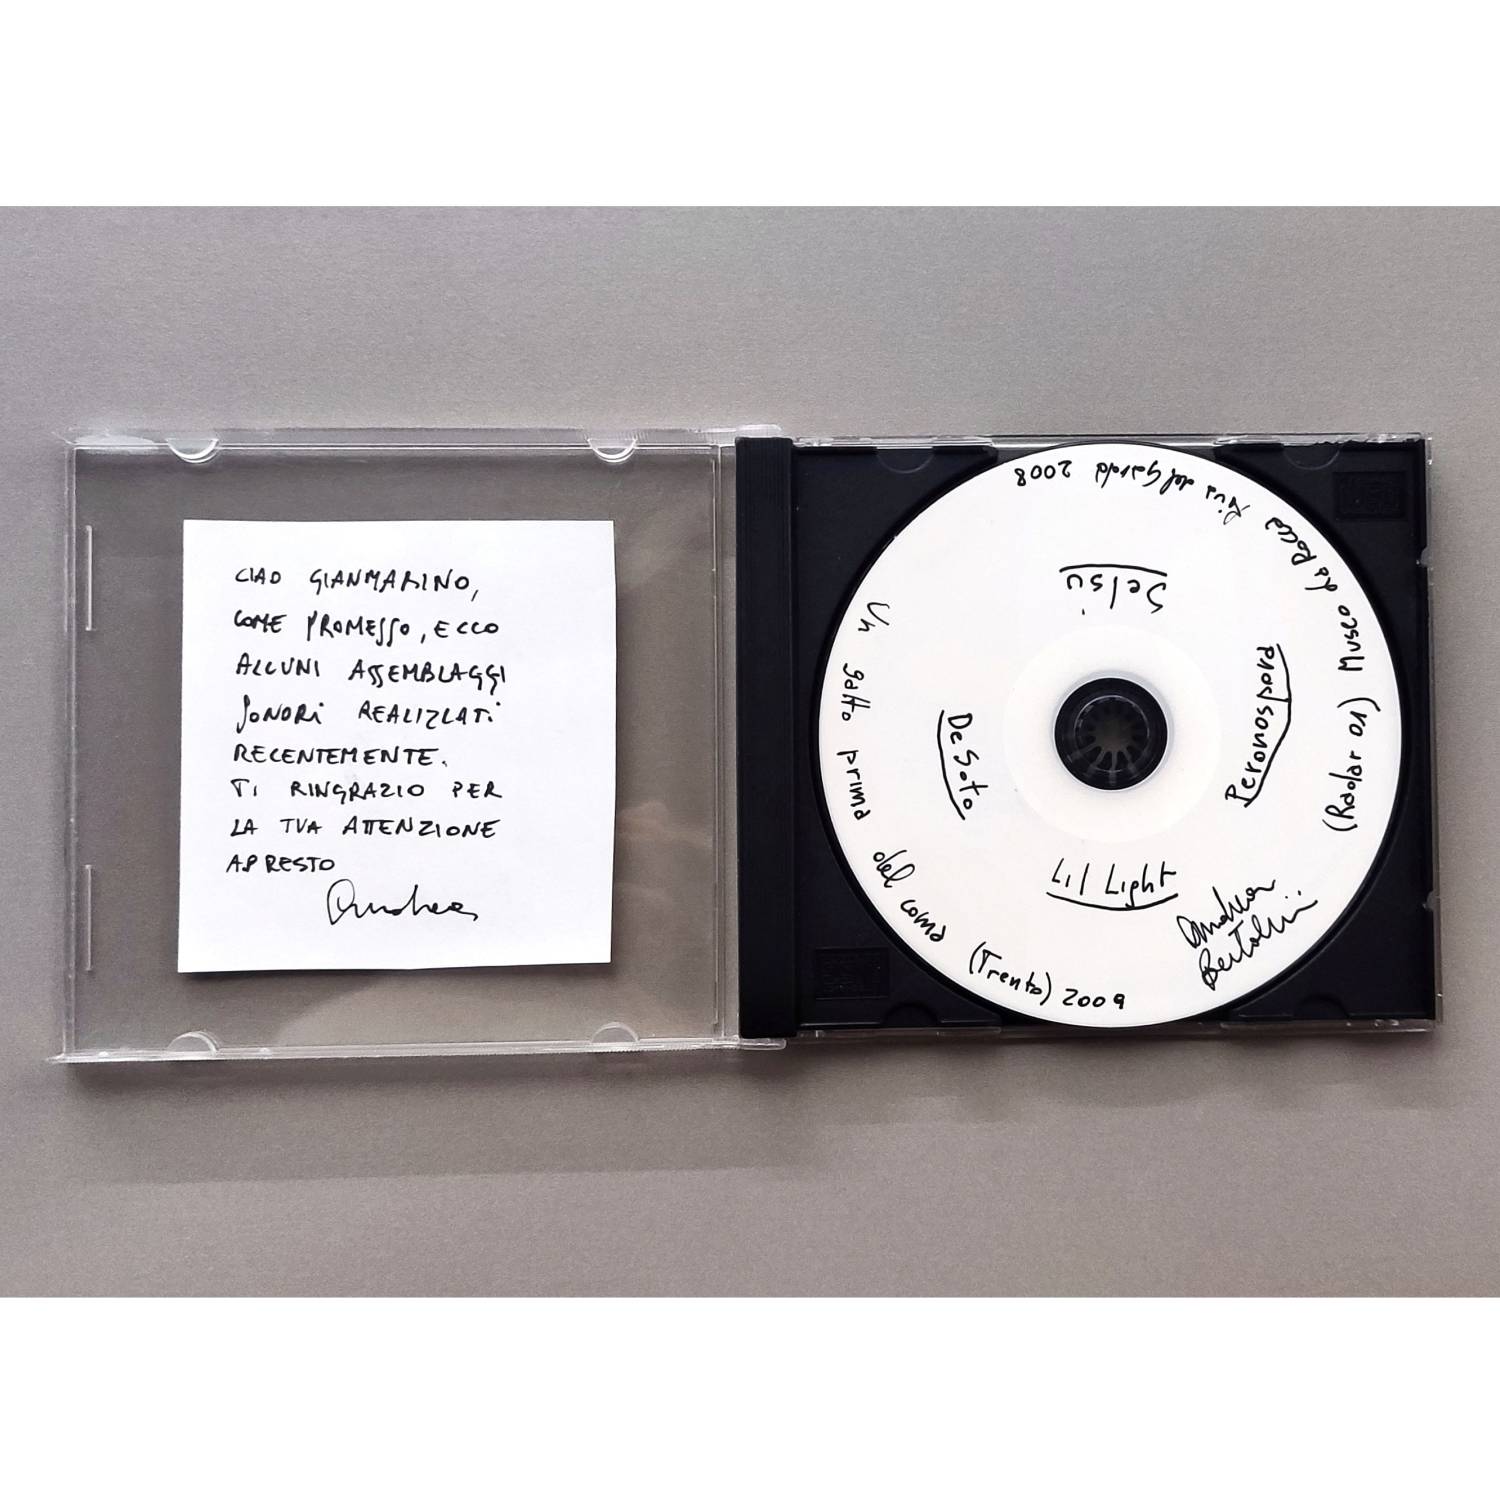 CIAO GIANMARINO,
COME PROMESSO, ECCO
ALCUNI ASSEMBLAGGI
SONORI REALIZZATI
RECENTEMENTE.
TI RINGRAZIO PER
LA TUA ATTENZIONE
A PRESTO
Andrea
Un gatto prima del coma (Trento) 2009
(Radar 01) Museo La Rocca Riva del Garda 2008
Selsi
Peronospora
De Soto
Lil Light
Andrea
Bertolini